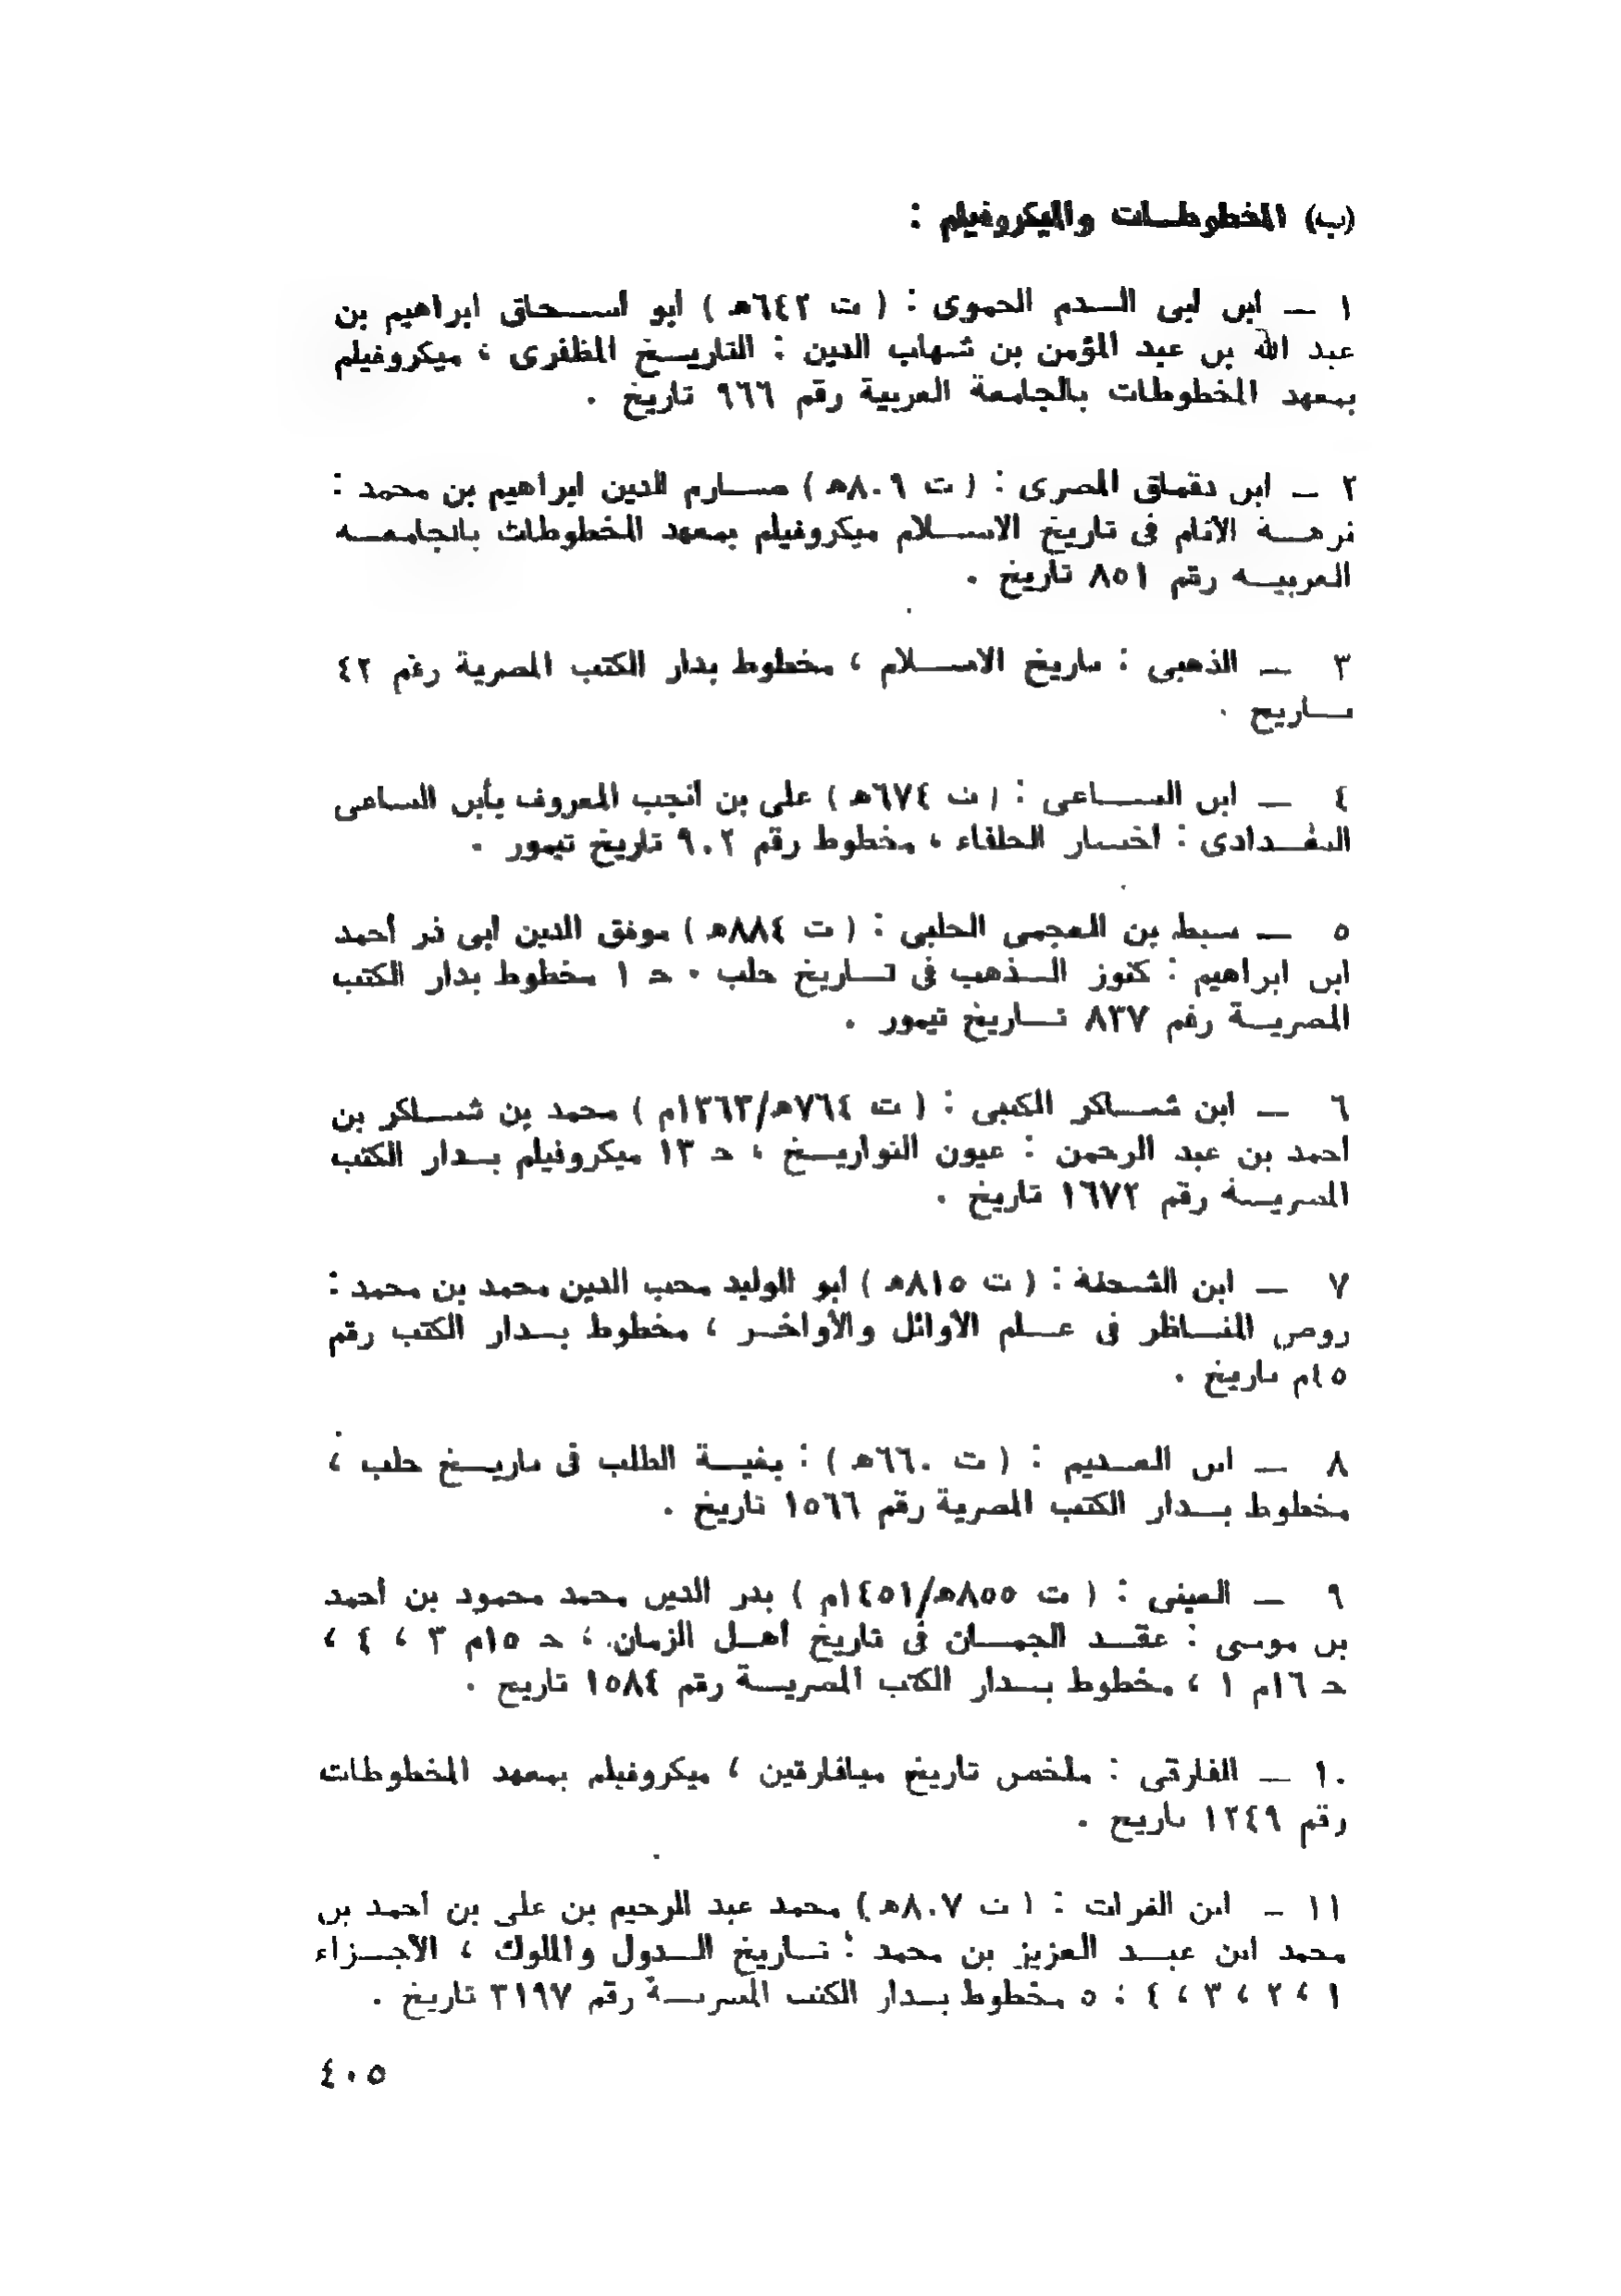 (ب) المخطوطات والميكروفيلم :
١ — ابن ابى الدم الحموى : ( ت ٦٤٢هـ ) أبو اسحاق ابراهيم بن
عبد الله بن عبد المؤمن بن شهاب الدين : التاريخ المظفرى ، ميكروفيلم
بمعهد المخطوطات بالجامعة العربية رقم ٩٦٦ تاريخ .
٢ — ابن دقماق المصرى : ( ت ٨٠٩هـ ) صارم الدين ابراهيم بن محمد :
نزهة الأنام فى تاريخ الاسلام ميكروفيلم بمعهد المخطوطات بالجامعة
العربية رقم ٨٥١ تاريخ .
٣ — الذهبى : تاريخ الاسلام ، مخطوط بدار الكتب المصرية رقم ٤٢
تاريخ .
٤ — ابن الساعى : ( ت ٦٧٤هـ ) على بن أنجب المعروف بأبن الساعى
البغدادى : اخبار الخلفاء ، مخطوط رقم ٩٠٢ تاريخ تيمور .
٥ — سبط بن العجمى الحلبى : ( ت ٨٨٤هـ ) موفق الدين ابى ذر أحمد
ابن ابراهيم : كنوز الذهب فى تاريخ حلب . حـ ١ مخطوط بدار الكتب
المصرية رقم ٨٣٧ تاريخ تيمور .
٦ — ابن شاكر الكتبى : ( ت ٧٦٤هـ/١٣٦٣م ) محمد بن شاكر بن
احمد بن عبد الرحمن : عيون التواريخ ، حـ ١٣ ميكروفيلم بدار الكتب
المصرية رقم ١٦٧٢ تاريخ .
٧ — ابن الشحنة : ( ت ٨١٥هـ ) أبو الوليد محب الدين محمد بن محمد :
روض المناظر فى علم الأوائل والأواخر ، مخطوط بدار الكتب رقم
٤٥م تاريخ .
٨ — ابن العديم : ( ت ٦٦٠هـ ) : بغية الطلب فى تاريخ حلب ،
مخطوط بدار الكتب المصرية رقم ١٥٦٦ تاريخ .
٩ — العينى : ( ت ٨٥٥هـ/١٤٥١م ) بدر الدين محمد محمود بن أحمد
بن موسى : عقد الجمان فى تاريخ أهل الزمان ، حـ ١٥م ٣ ، ٤ ،
حـ ١٦م ١ ، مخطوط بدار الكتب المصرية رقم ١٥٨٤ تاريخ .
١٠ — الفارقى : ملخص تاريخ ميافارقين ، ميكروفيلم بمعهد المخطوطات
رقم ١٢٤٩ تاريخ .
١١ – ابن الفرات : ( ت ٨٠٧هـ ) محمد عبد الرحيم بن على بن أحمد بن
محمد ابن عبد العزيز بن محمد : تاريخ الدول والملوك ، الأجزاء
١ ، ٢ ، ٣ ، ٤ ، ٥ مخطوط بدار الكتب المصرية رقم ٣١٩٧ تاريخ .
٤٠٥